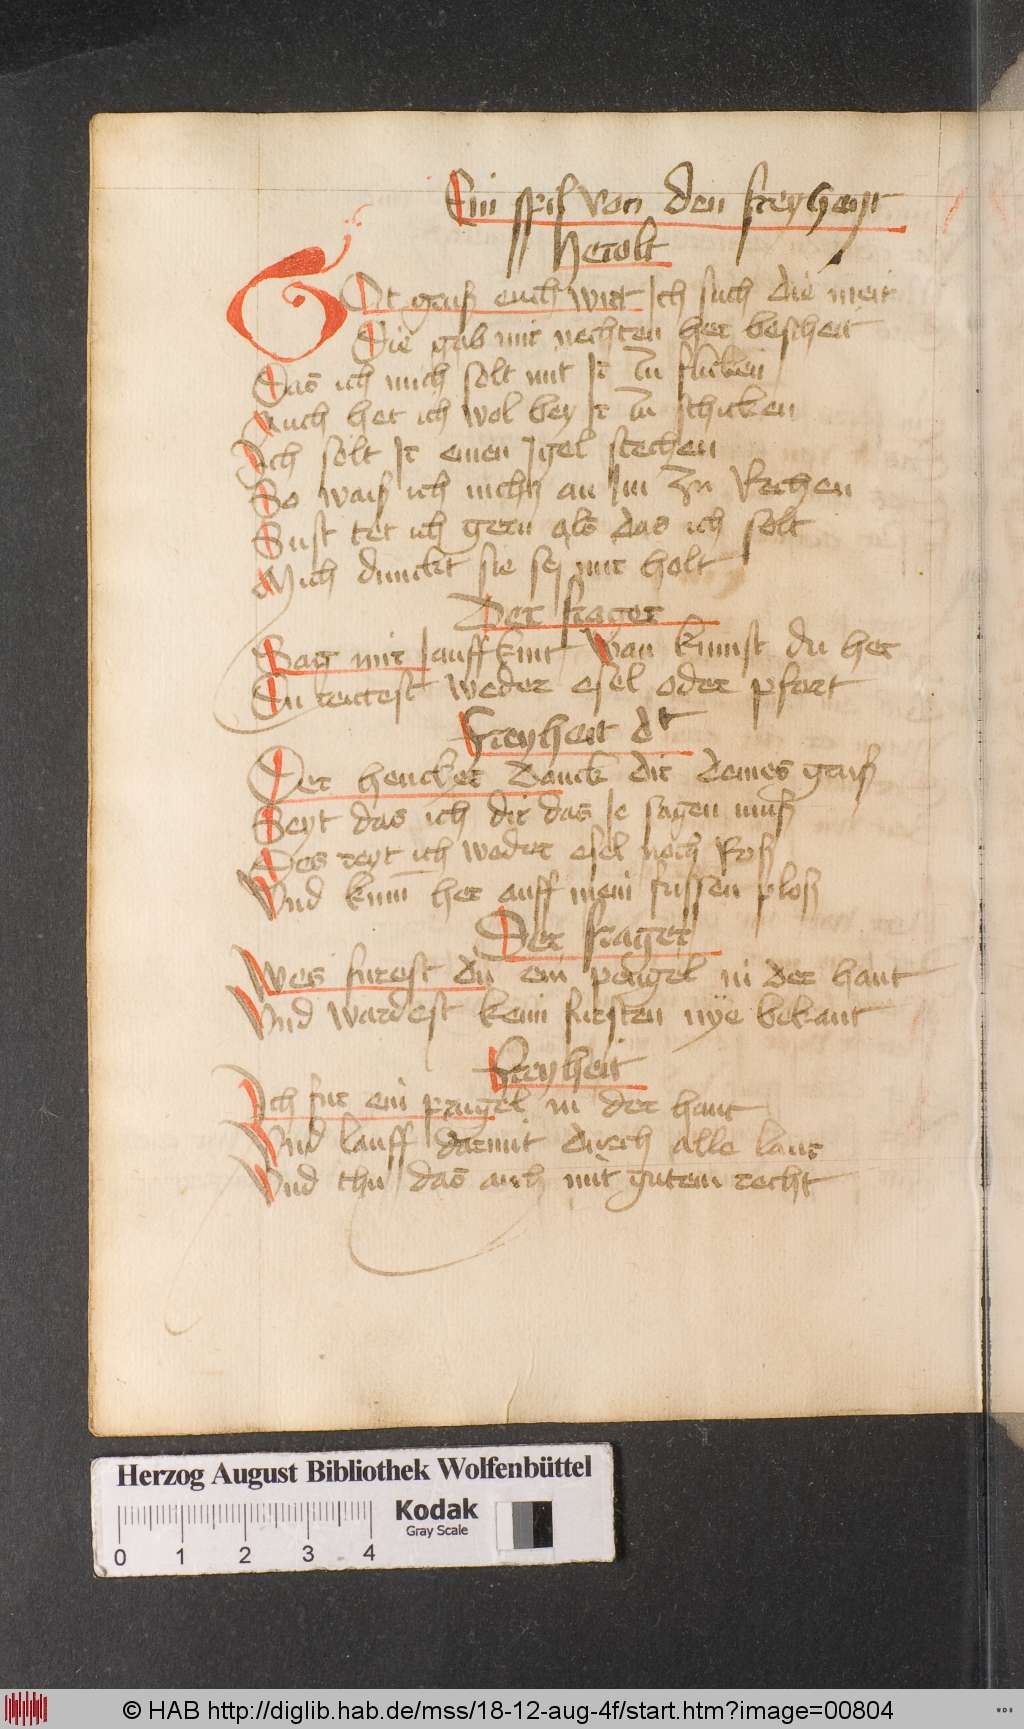 Ein spil von den freyheyt
Herolt
GOt gruß euch wirt Ich such die meit
Die gab mir nechten her bescheit
Das ich mich solt mit Ir zu flicken
Auch het ich wol bey Ir zu schicken
Ich solt Ir einen Igel stechen
So waiß ich nichtz an Im zu Rechen
Sust tet ich gern als das ich solt
Mich dunckt sie sej mir holt
Der frager
Sag mir lauffkint wan kumst du her
Du reutest weder esel oder pfert
Freyheit dt
Der hencker danck dir deines gruß
Seyt das ich dir das Ie sagen muß
Des reyt ich weder esel noch Roß
Vnd kum her auff mein fussen ploß
Der frager
Wes furest du ein prugel in der hant
Vnd wardest keim fursten nye bekant
Freyheit
Ich fur ein prugel in der hant
Vnd lauff darmit durch alle lant
Vnd thu das auch mit gutem recht
Herzog August Bibliothek Wolfenbüttel
0 1 2 3 4
Kodak
Gray Scale
© HAB http://diglib.hab.de/mss/18-12-aug-4f/start.htm?image=00804